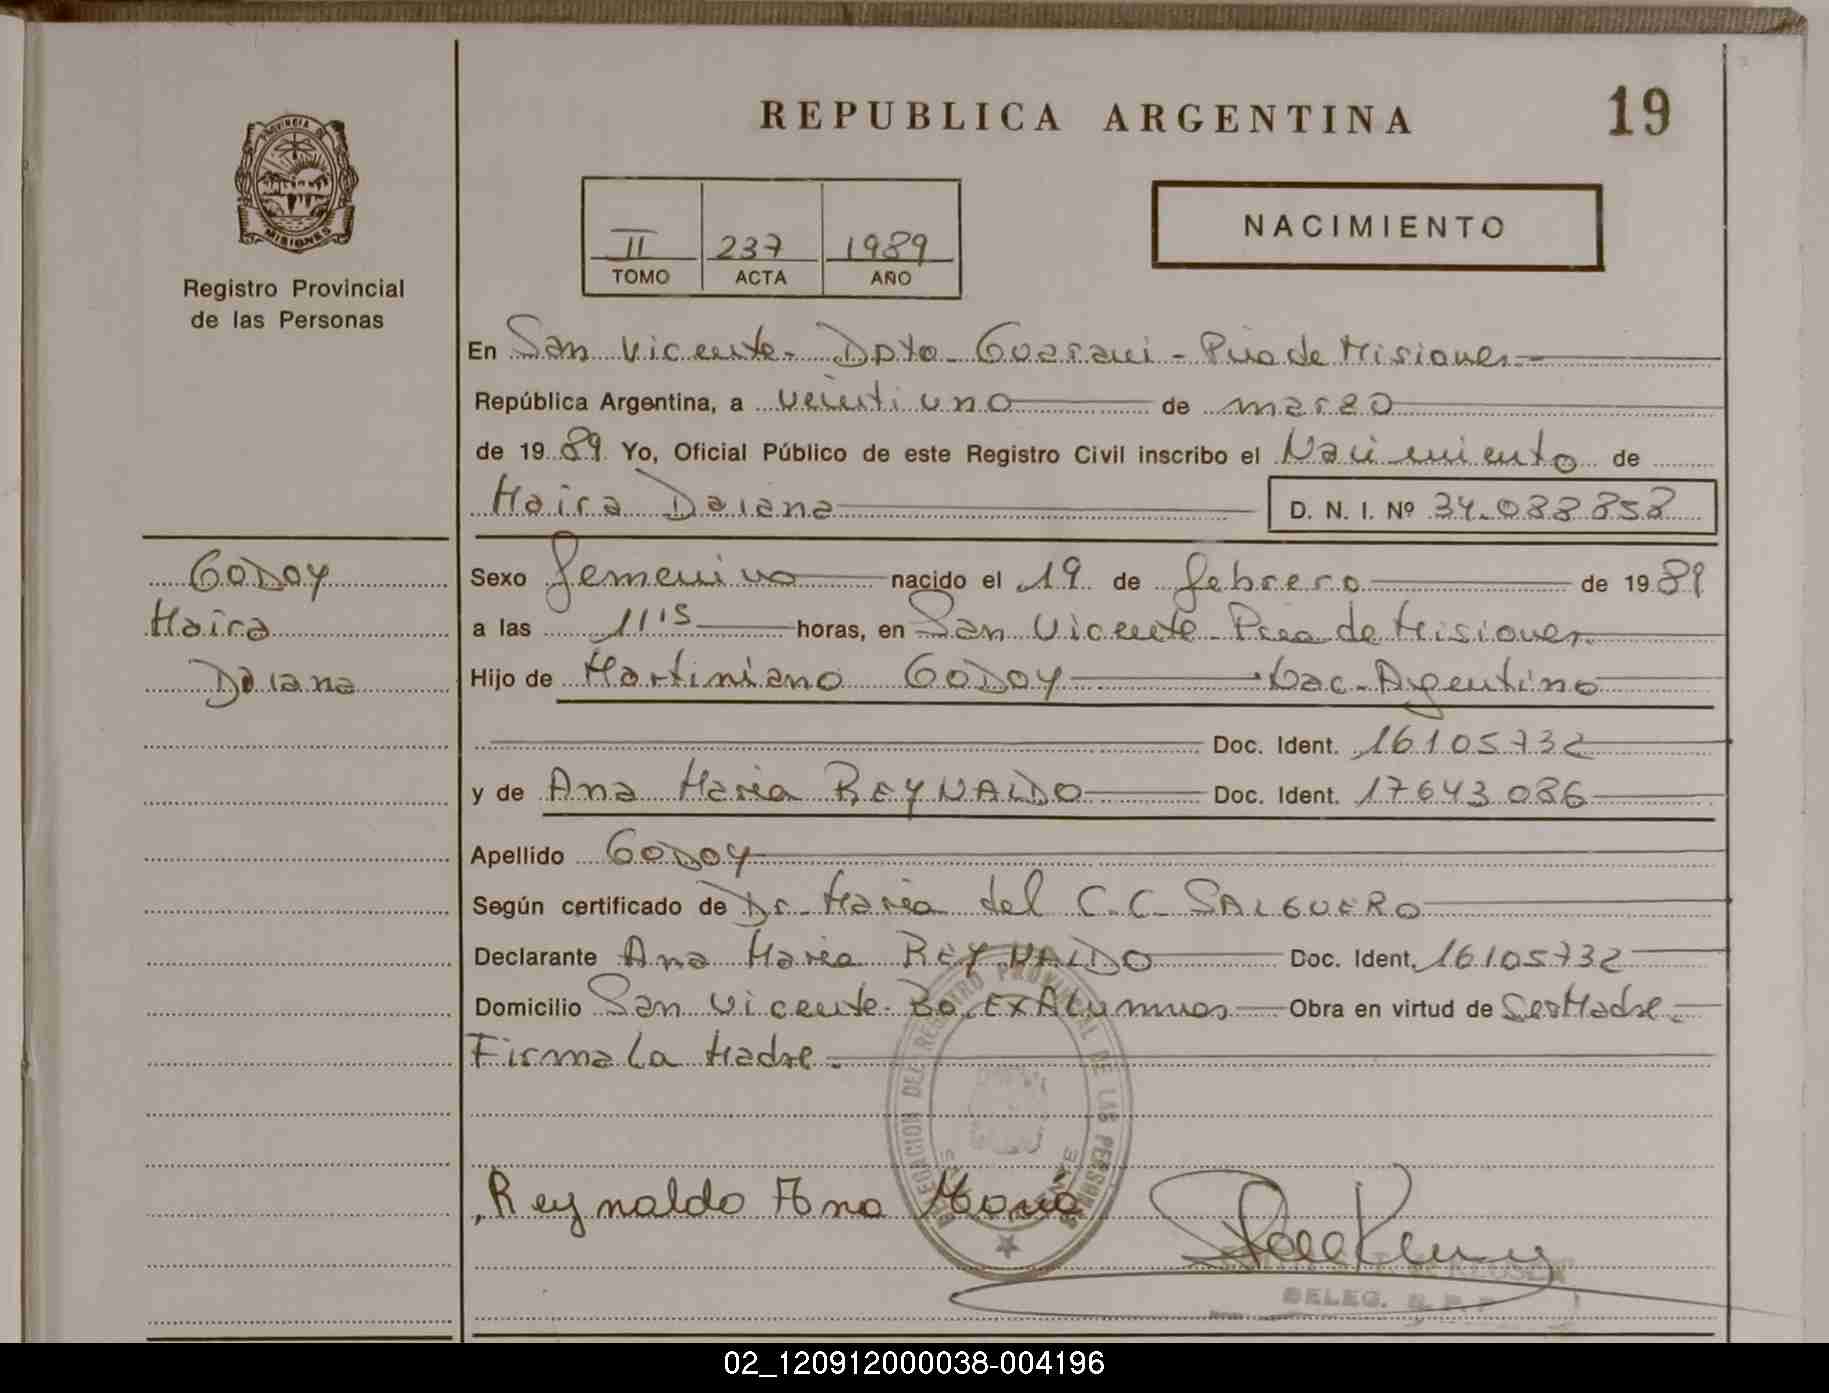 REPUBLICA ARGENTINA
19
PROVINCIA DE
MISIONES
Registro Provincial
de las Personas
II 237 1989
TOMO ACTA AÑO
NACIMIENTO
En San Vicente - Dpto Guarani - Pcia de Misiones
República Argentina, a veintiuno de marzo
de 1989 Yo, Oficial Público de este Registro Civil inscribo el Nacimiento de
Maira Daiana
D. N. I. Nº 34.088858
GODOY
Maira
Daiana
Sexo femenino nacido el 19 de febrero de 1989
a las 11'5 horas, en San Vicente - Pcia de Misiones
Hijo de Martiniano GODOY Nac - Argentino
Doc. Ident. 16105732
y de Ana Maria REYNALDO Doc. Ident. 17643086
Apellido GODOY
Según certificado de Dr. Maria del C. C. SALGUERO
Declarante Ana Maria REYNALDO Doc. Ident. 16105732
Domicilio San Vicente - Bo. Ex Alumnos Obra en virtud de Ser Madre -
Firma La Madre -
DELEGACION DEL REGISTRO PROVINCIAL DE LAS PERSONAS
Reynaldo Ana Maria
DELEG.
02_120912000038-004196